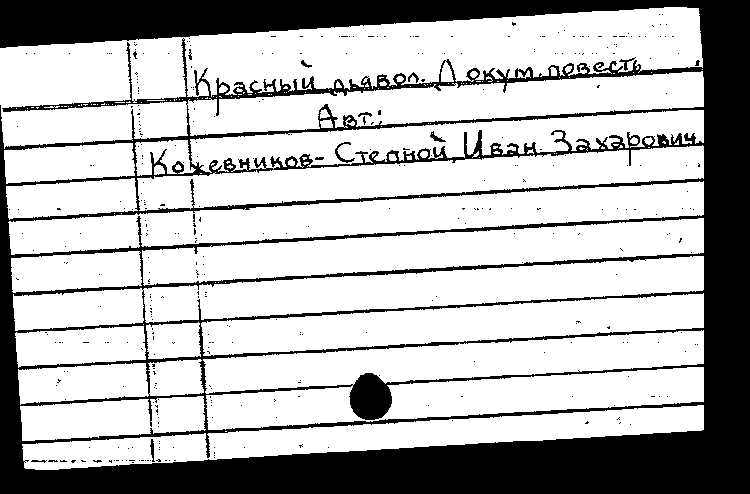 Красный дьявол. Докум. повесть
Авт.:
Кожевников-Степной, Иван Захарович.